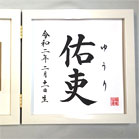 ゆうり
佑吏
令和二年二月二十一日生